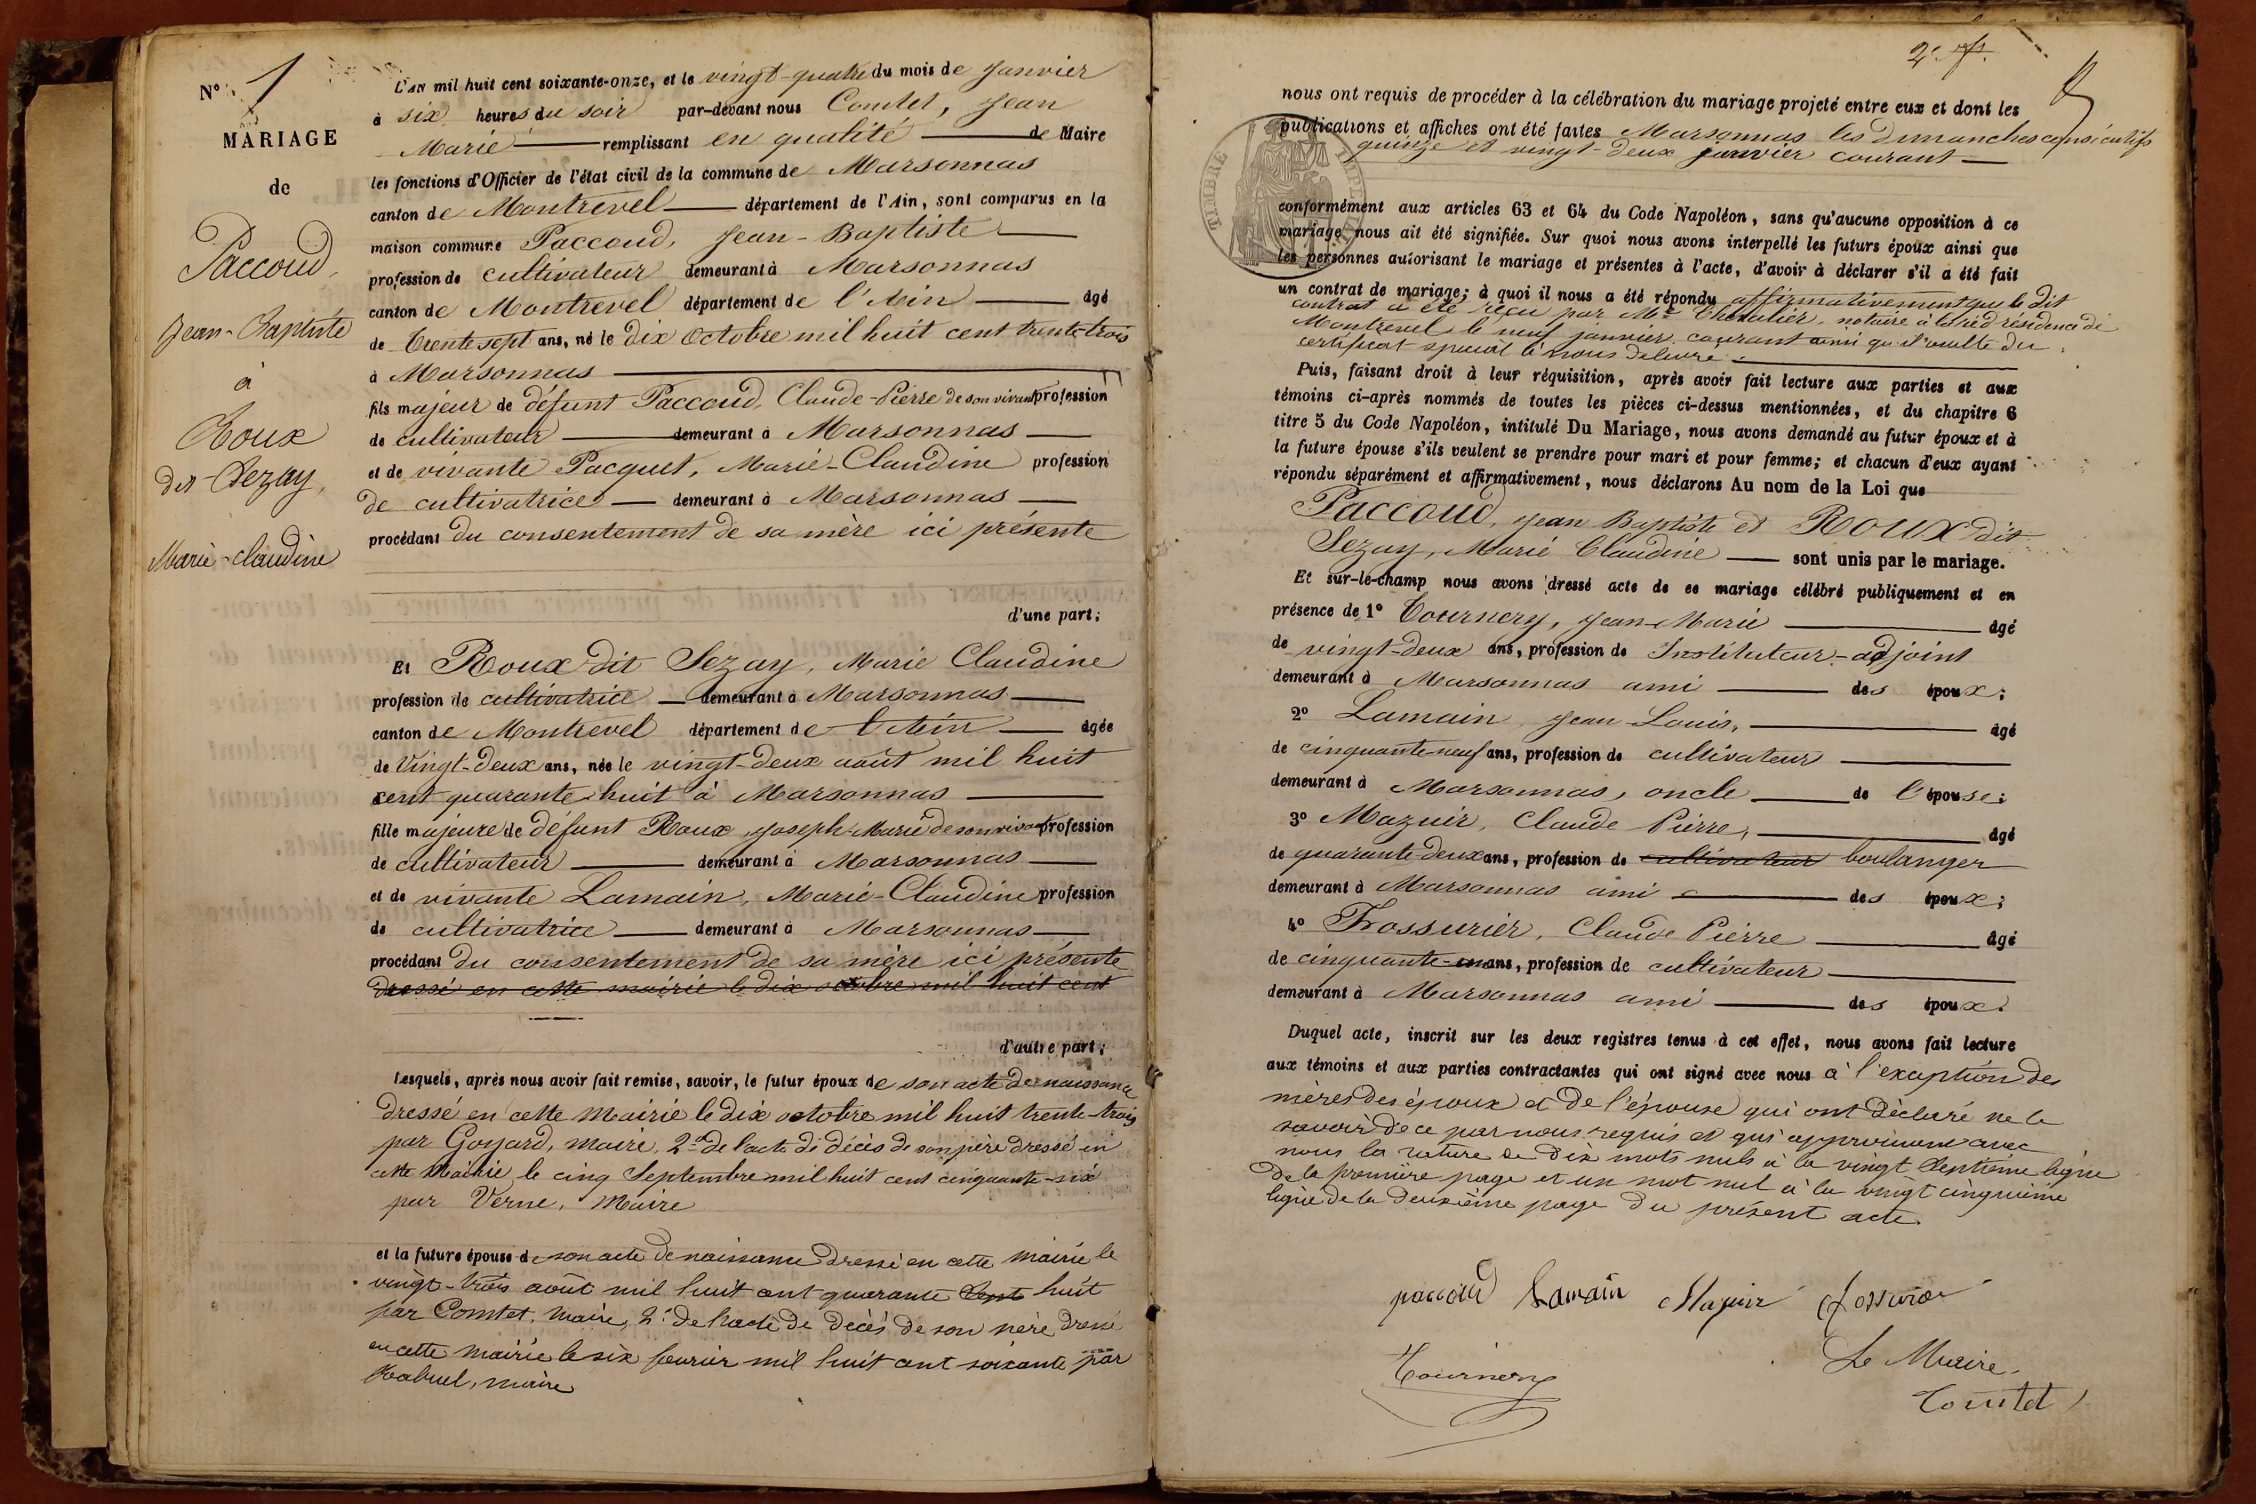 N° 1
MARIAGE
de
Paccoud,
Jean-Baptiste
à
Roux
dit Sezay,
Marie-Claudine
L'AN mil huit cent soixante-onze, et le vingt-quatre du mois de Janvier
à six heures du soir par-devant nous Comtet, Jean
Marie remplissant en qualité de Maire
les fonctions d'Officier de l'état civil de la commune de Marsonnas
canton de Montrevel département de l'Ain, sont comparus en la
maison commune Paccoud, Jean-Baptiste
profession de cultivateur demeurant à Marsonnas
canton de Montrevel département de l'Ain âgé
de trente sept ans, né le dix Octobre mil huit cent trente-trois
à Marsonnas
fils majeur de défunt Paccoud, Claude-Pierre de son vivant profession
de cultivateur demeurant à Marsonnas
et de vivante Pacquet, Marie-Claudine profession
de cultivatrice demeurant à Marsonnas
procédant du consentement de sa mère ici présente
d'une part;
Et Roux dit Sezay, Marie Claudine
profession de cultivatrice demeurant à Marsonnas
canton de Montrevel département de l'Ain âgée
de Vingt-deux ans, née le vingt-deux août mil huit
cent quarante-huit à Marsonnas
fille majeure de défunt Roux, Joseph-Marie de son vivant profession
de cultivateur demeurant à Marsonnas
et de vivante Lamain, Marie-Claudine profession
de cultivatrice demeurant à Marsonnas
procédant du consentement de sa mère ici présente
dressé en cette mairie le dix octobre mil huit cent
d'autre part;
Lesquels, après nous avoir fait remise, savoir, le futur époux de son acte de naissance
dressé en cette Mairie le dix octobre mil huit trente-trois
par Goyard, maire, 2° de l'acte de décès de son père dressé en
cette Mairie le cinq Septembre mil huit cent cinquante-six
par Verne, Maire
et la future épouse de son acte de naissance dressé en cette Mairie le
vingt-trois août mil huit cent quarante huit
par Comtet, Maire, 2° de l'acte de décès de son père dressé
en cette mairie le six février mil huit cent soixante par
Rabuel, maire
nous ont requis de procéder à la célébration du mariage projeté entre eux et dont les
publications et affiches ont été faites Marsonnas les dimanches consécutifs
quinze et vingt-deux janvier courant
TIMBRE IMPÉRIAL
conformément aux articles 63 et 64 du Code Napoléon, sans qu'aucune opposition à ce
mariage nous ait été signifiée. Sur quoi nous avons interpellé les futurs époux ainsi que
les personnes autorisant le mariage et présentes à l'acte, d'avoir à déclarer s'il a été fait
un contrat de mariage; à quoi il nous a été répondu affirmativement que le dit
contrat a été reçu par Me Chevalier, notaire à la résidence de
Montrevel le neuf janvier courant ainsi qu'il résulte du
certificat spécial à nous délivré.
Puis, faisant droit à leur réquisition, après avoir fait lecture aux parties et aux
témoins ci-après nommés de toutes les pièces ci-dessus mentionnées, et du chapitre 6
titre 5 du Code Napoléon, intitulé Du Mariage, nous avons demandé au futur époux et à
la future épouse s'ils veulent se prendre pour mari et pour femme; et chacun d'eux ayant
répondu séparément et affirmativement, nous déclarons Au nom de la Loi que
Paccoud, Jean Baptiste et ROUX dit
Sezay, Marie Claudine sont unis par le mariage.
Et sur-le-champ nous avons dressé acte de ce mariage célébré publiquement et en
présence de 1° Tournery, Jean-Marie âgé
de vingt-deux ans, profession de Instituteur-adjoint
demeurant à Marsonnas ami des époux;
2° Lamain Jean-Louis, âgé
de cinquante-neuf ans, profession de cultivateur
demeurant à Marsonnas, oncle de l'épouse;
3° Mazuir, Claude Pierre, âgé
de quarante-deux ans, profession de cultivateur boulanger
demeurant à Marsonnas ami des époux;
4° Frossurier, Claude Pierre âgé
de cinquante-un ans, profession de cultivateur
demeurant à Marsonnas ami des époux.
Duquel acte, inscrit sur les deux registres tenus à cet effet, nous avons fait lecture
aux témoins et aux parties contractantes qui ont signé avec nous à l'exception des
mères des époux et de l'épouse qui ont déclaré ne le
savoir de ce par nous requis et qui approuvent avec
nous la rature de dix mots nuls à la vingt septième ligne
de la première page et un mot nul à la vingt cinquième
ligne de la deuxième page du présent acte.
paccoud Lamain Mazuir
Tournery
Le Maire,
Comtet